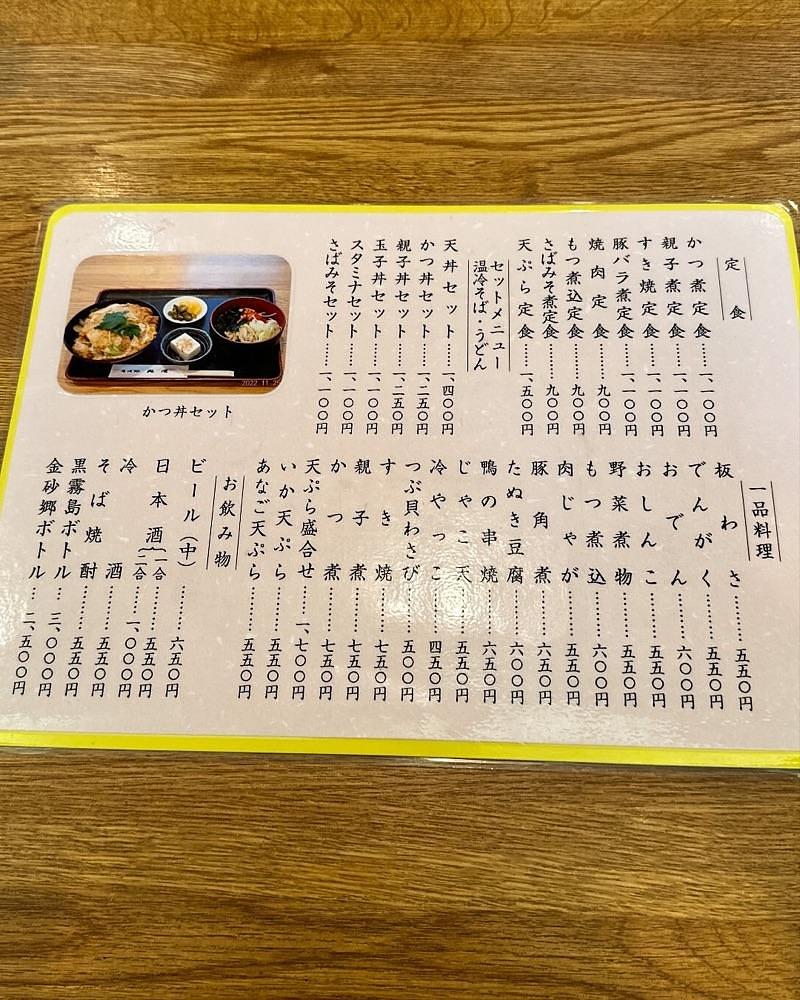 定食
かつ煮定食……一、一〇〇円
親子煮定食……一、一〇〇円
すき焼定食……一、一〇〇円
豚バラ煮定食……一、一〇〇円
焼肉定食……九〇〇円
もつ煮込定食……九〇〇円
さばみそ煮定食……九〇〇円
天ぷら定食……一、五〇〇円
セットメニュー
温冷そば・うどん
天丼セット……一、四〇〇円
かつ丼セット……一、二五〇円
親子丼セット……一、二五〇円
玉子丼セット……一、一〇〇円
スタミナセット……一、一〇〇円
さばみそセット……一、一〇〇円
2022.11.25
かつ丼セット
一品料理
板わさ……五五〇円
でんがく……五五〇円
おでん……六〇〇円
おしんこ……五五〇円
野菜煮物……五五〇円
もつ煮込……六〇〇円
肉じゃが……五五〇円
豚角煮……六五〇円
たぬき豆腐……六〇〇円
鴨の串焼……六五〇円
じゃこ天……五五〇円
冷やっこ……四五〇円
つぶ貝わさび……五〇〇円
すき焼……七五〇円
親子煮……七五〇円
かつ煮……七五〇円
天ぷら盛合せ……一、七〇〇円
いか天ぷら……五五〇円
あなご天ぷら……五五〇円
お飲み物
ビール（中）……六五〇円
日本酒{一合……五五〇円
二合……一、〇〇〇円
冷酒……五五〇円
そば焼酎……五五〇円
黒霧島ボトル…三、〇〇〇円
金砂郷ボトル…二、五〇〇円